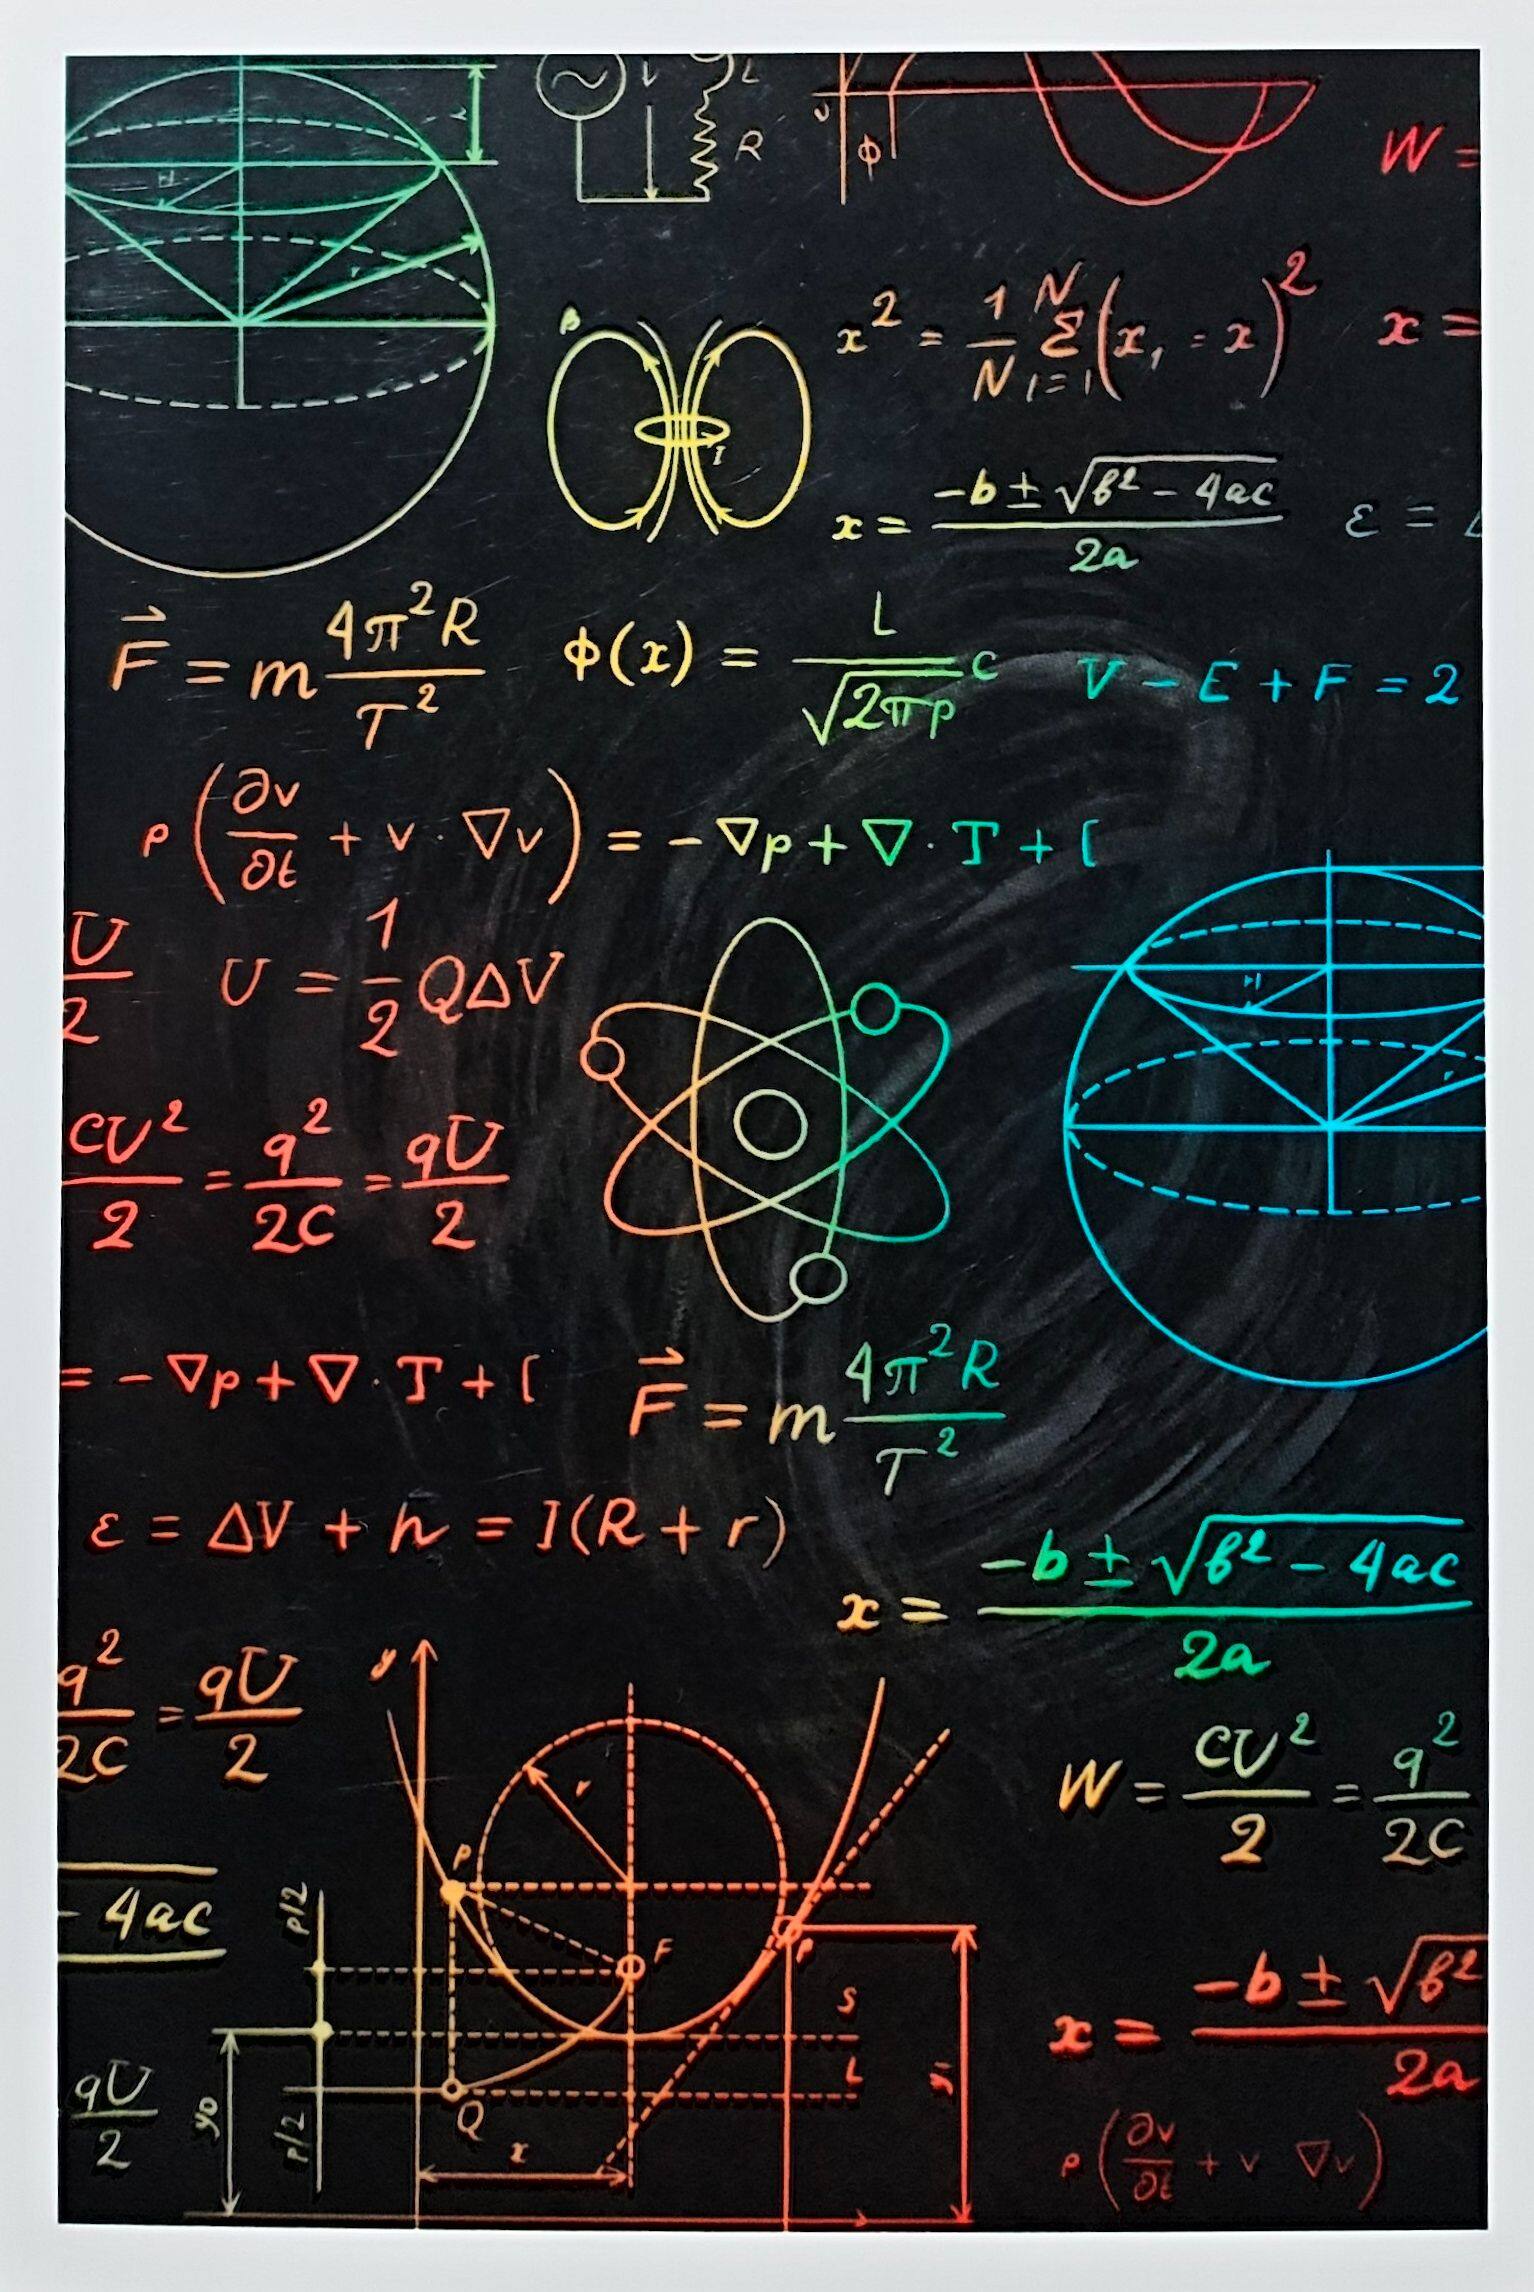 L
R
ϕ
W =
B
I
x² = 1/N Σ N i=1 (x, = x)²
x =
x = -b ± √b² - 4ac / 2a
ε =
F⃗ = m 4π²R / T²
ϕ(x) = L / √2πp c
V - E + F = 2
ρ(∂v/∂t + v · ∇v) = -∇p + ∇ · T + [
U/2
U = 1/2 Q∆V
CU²/2 = q²/2C = qU/2
= -∇p + ∇ · T + [
F⃗ = m 4π²R / T²
ε = ∆V + h = I(R + r)
x = -b ± √b² - 4ac / 2a
q²/2C = qU/2
y
r
P
F
W = CU²/2 = q²/2C
- 4ac
p/2
P
S
L
x = -b ± √b² / 2a
qU/2
y₀
p/2
Q
x
ρ(∂v/∂t + v ∇v)